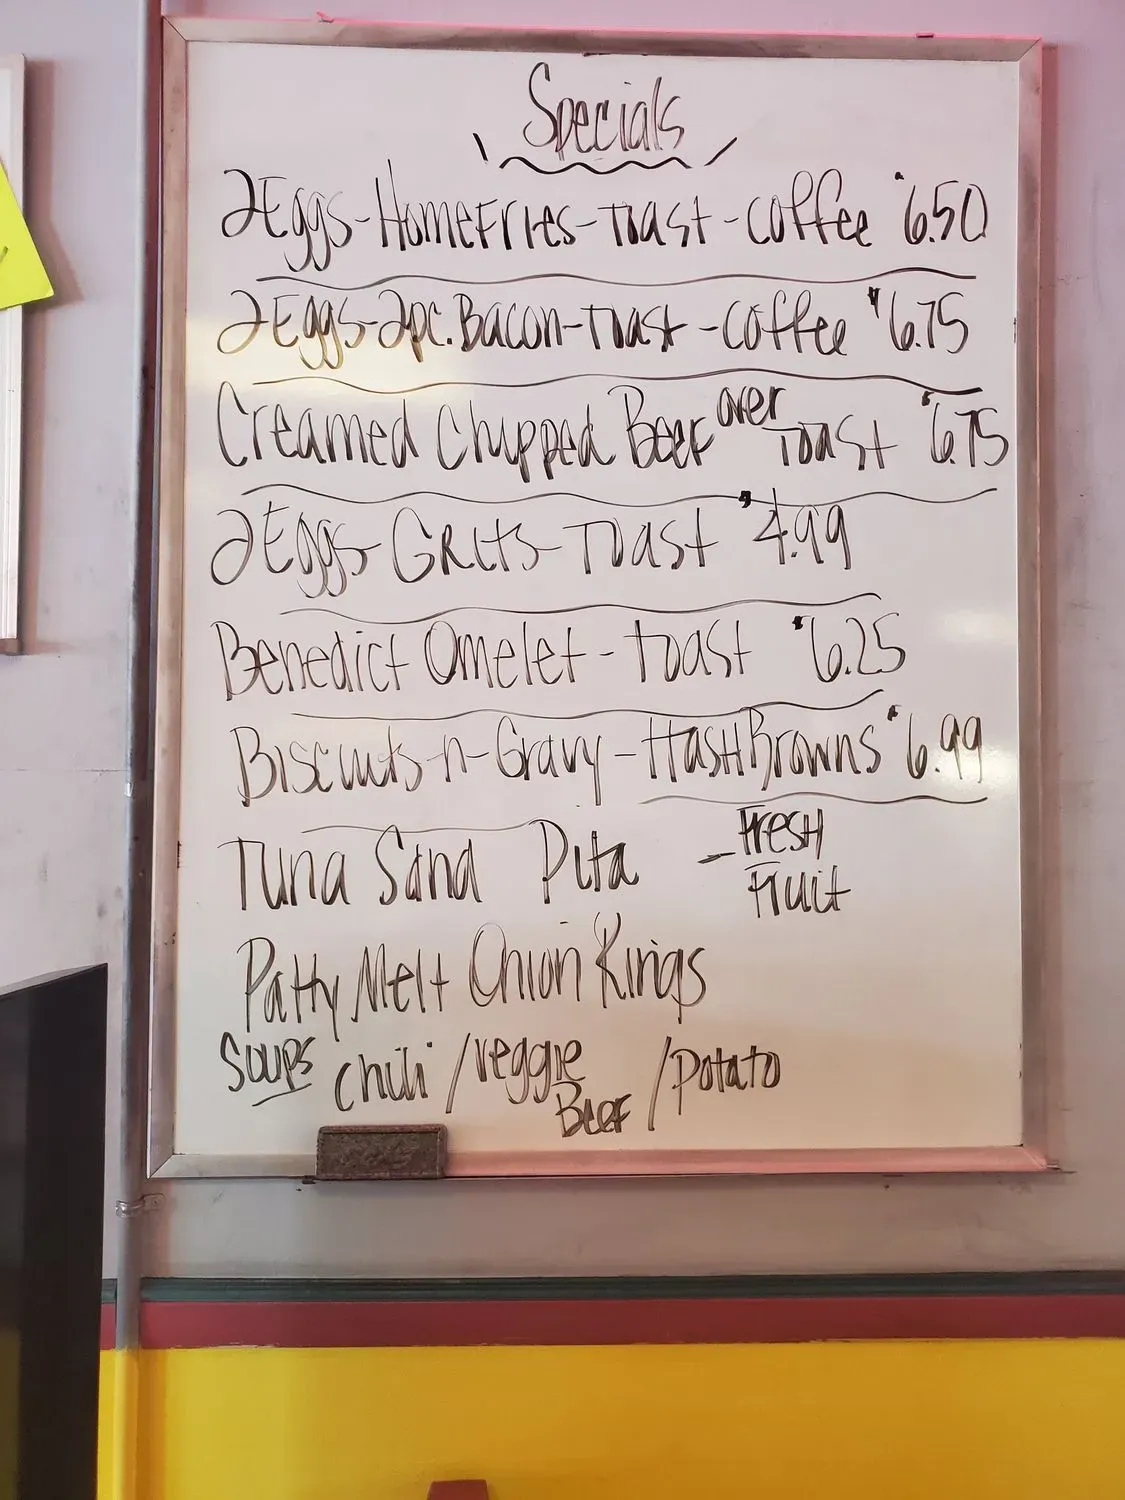 Specials
2 Eggs - Home Fries - Toast - Coffee $6.50
2 Eggs - 2pc. Bacon - Toast - Coffee $6.75
Creamed Chipped Beef over Toast $6.75
2 Eggs - Grits - Toast $4.99
Benedict Omelet - Toast $6.25
Biscuits-n-Gravy - HashBrowns $6.99
Tuna Sand Pita - Fresh
Fruit
Patty Melt Onion Rings
Soups Chili / Veggie Beef / Potato